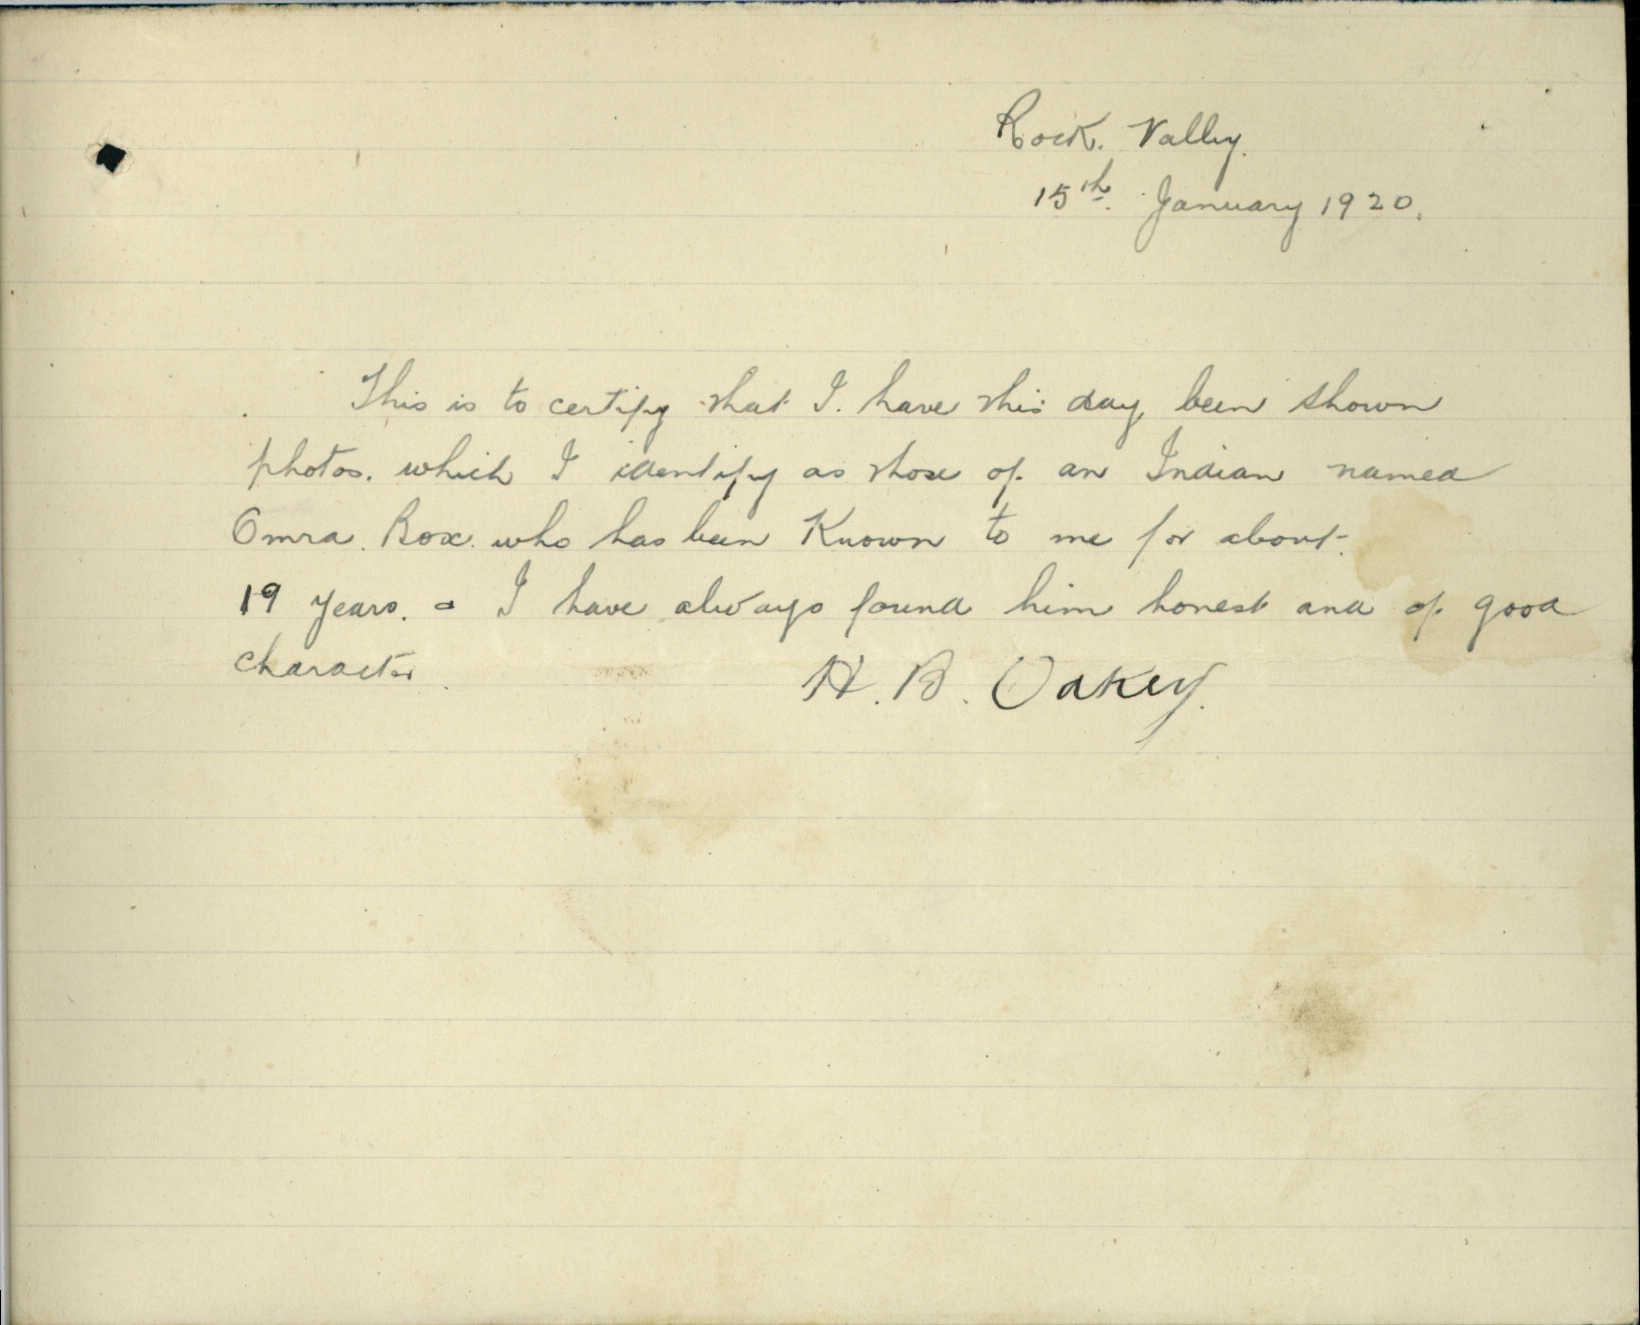 Rock. Valley.
15th. January 1920.
This is to certify that I. have this day been shown
photos. which I identify as those of. an Indian named
Omra. Box. who has been Known to me for about.
19 years. = I have always found him honest and of. good
character.
H. B. Oakey.